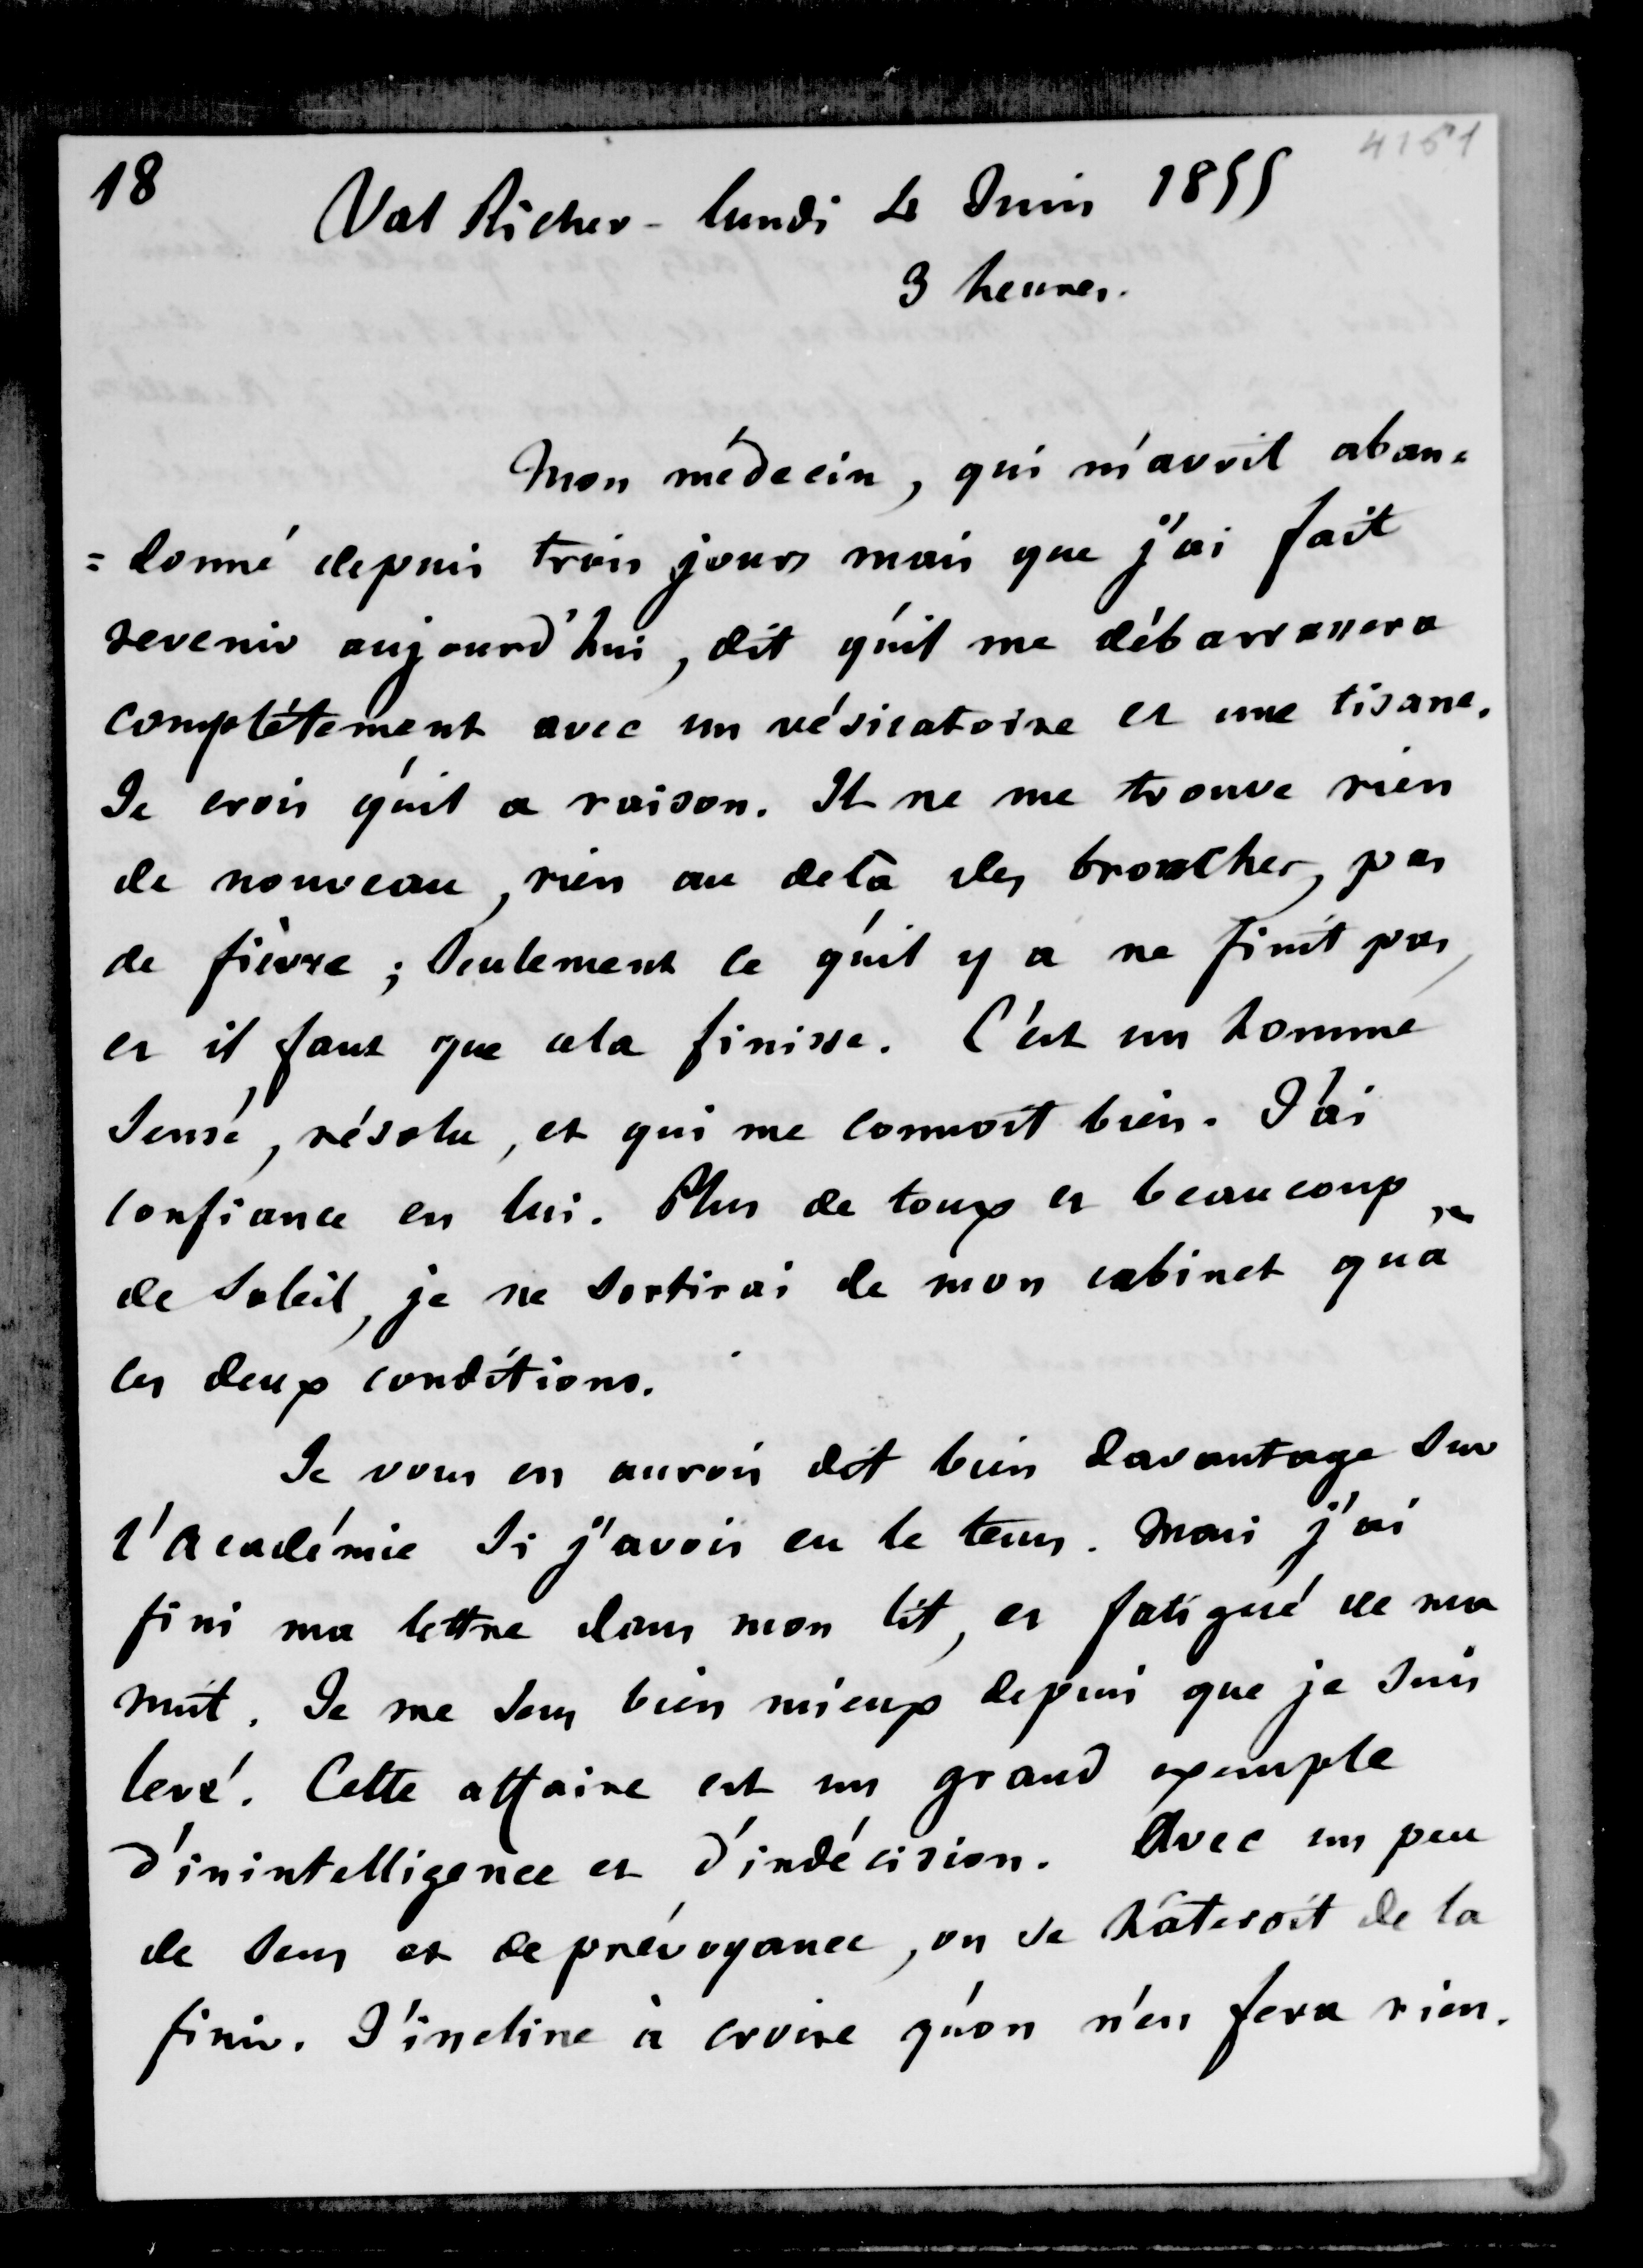 18
4151
Val Richer - lundi 4 Juin 1855
3 heures.
Mon médecin, qui m'avoit aban=
=donné depuis trois jours mais que j'ai fait
revenir aujourd'hui, dit qu'il me débarrassera
complétement avec un vésicatoire et une tisane.
Je crois qu'il a raison. Il ne me trouve rien
de nouveau, rien au delà des bronches, pas
de fièvre ; seulement ce qu'il y a ne finit pas,
et il faut que cela finisse. C'est un homme
sensé, résolu, et qui me connoit bien. J'ai
confiance en lui. Plus de toux et beaucoup
de soleil, je ne sortirai de mon cabinet qu'à
ces deux conditions.
Je vous en aurois dit bien davantage sur
l'Académie si j'avois eu le tems. Mais j'ai
fini ma lettre dans mon lit, et fatigué de ma
nuit. Je me sens bien mieux depuis que je suis
levé. Cette affaire est un grand exemple
d'inintelligence et d'indécision. Avec un peu
de sens et de prévoyance, on se hâteroit de la
finir. J'incline à croire qu'on n'en fera rien.